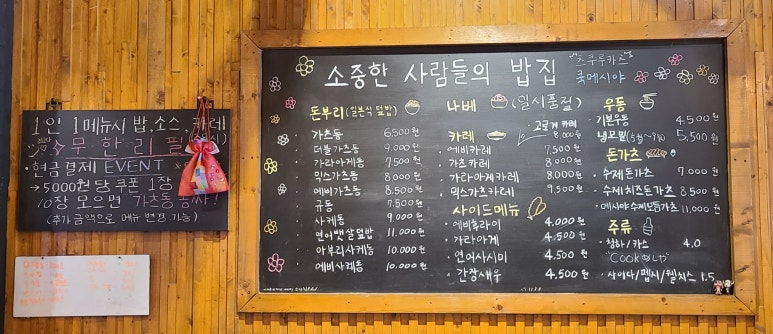 1인 1메뉴시 밥,소스,카레
무한리필
현금결제 EVENT
→5000원 당 쿠폰 1장
10장 모으면 가츠동
(추가금액으로 메뉴 변경 가능)
소중한 사람들의 밥집
스쿠루카츠
쿡메시야
돈부리(일본식 덮밥)
가츠동 6.500원
더블가츠동 9.000원
가라아게동 7.500원
믹스가츠동 8.000원
에비가츠동 8.500원
규동 7.500원
사케동 9.000원
연어뱃살덮밥 11.000원
아부리사케동 10.000원
에비사케동 10.000원
나베 (일시품절)
카레
고로케 카레 8,000원
에비카레 7,500원
가츠카레 8,000원
가라아게카레 8,000원
믹스가츠카레 9,500원
사이드메뉴
에비후라이 4.000원
가라아게 4.500원
연어사시미 4.500원
간장새우 4.500원
우동
기본우동 4500원
냉모밀(5월~9월) 5,500원
돈가츠
수제돈가츠 7,000원
수제치즈돈가츠 8,500원
메시야수제모듬가츠 11,000원
주류
청하/카스 4.0
사이다/펩시/웰치스 1.5